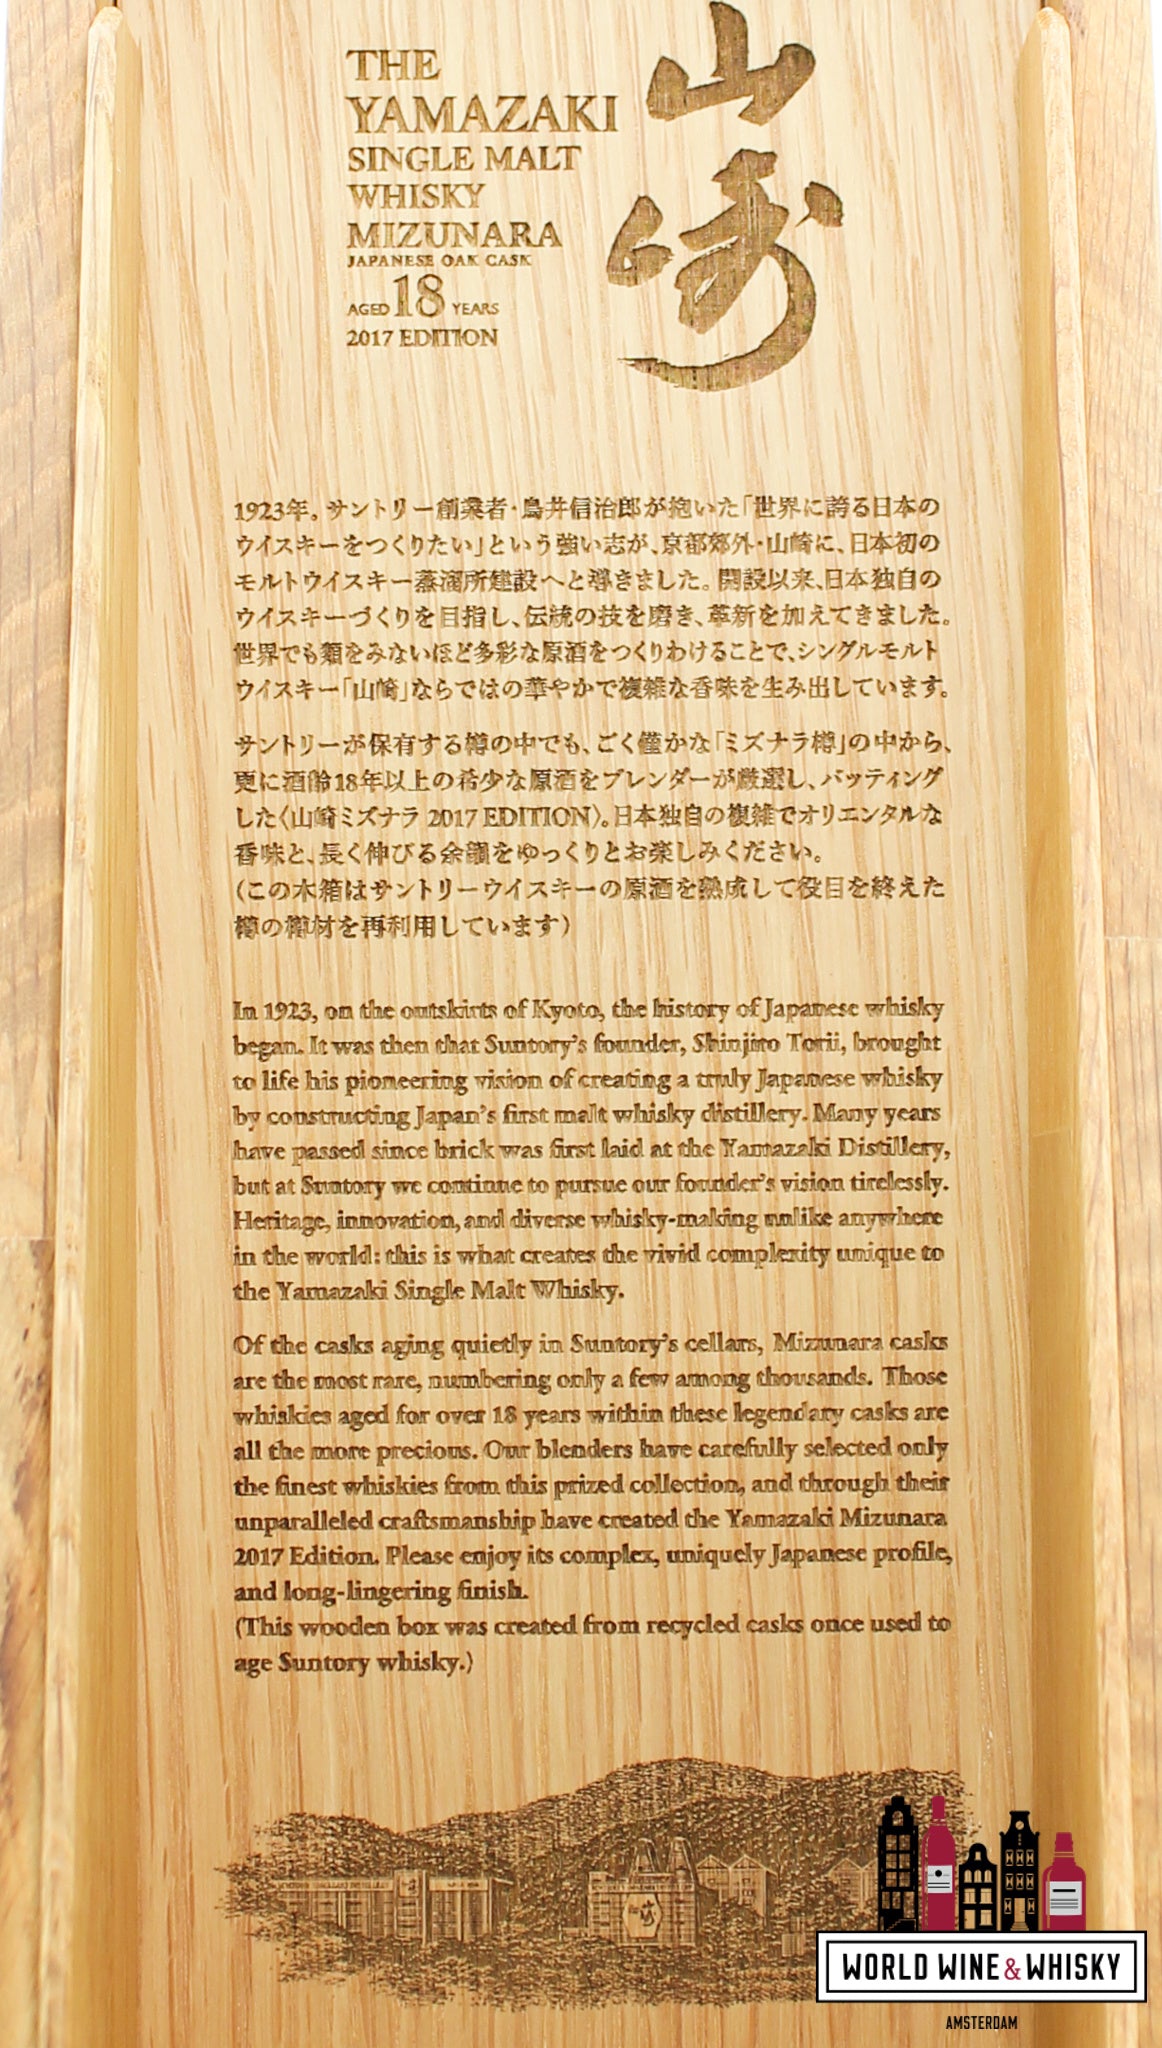 THE
YAMAZAKI
SINGLE MALT
WHISKY
MIZUNARA
JAPANESE OAK CASK
AGED 18 YEARS
2017 EDITION
山崎
1923年。サントリー創業者・鳥井信治郎が抱いた「世界に誇る日本の
ウイスキーをつくりたい」という強い志が、京都郊外・山崎に、日本初の
モルトウイスキー蒸溜所建設へと導きました。開設以来、日本独自の
ウイスキーづくりを目指し、伝統の技を磨き、革新を加えてきました。
世界でも類をみないほど多彩な原酒をつくりわけることで、シングルモルト
ウイスキー「山崎」ならではの華やかで複雑な香味を生み出しています。
サントリーが保有する樽の中でも、ごく僅かな「ミズナラ樽」の中から、
更に酒齢18年以上の希少な原酒をブレンダーが厳選し、バッティング
した〈山崎ミズナラ 2017 EDITION〉。日本独自の複雑でオリエンタルな
香味と、長く伸びる余韻をゆっくりとお楽しみください。
（この木箱はサントリーウイスキーの原酒を熟成して役目を終えた
樽の樽材を再利用しています）
In 1923, on the outskirts of Kyoto, the history of Japanese whisky
began. It was then that Suntory's founder, Shinjiro Torii, brought
to life his pioneering vision of creating a truly Japanese whisky
by constructing Japan's first malt whisky distillery. Many years
have passed since brick was first laid at the Yamazaki Distillery,
but at Suntory we continue to pursue our founder's vision tirelessly.
Heritage, innovation, and diverse whisky-making unlike anywhere
in the world: this is what creates the vivid complexity unique to
the Yamazaki Single Malt Whisky.
Of the casks aging quietly in Suntory's cellars, Mizunara casks
are the most rare, numbering only a few among thousands. Those
whiskies aged for over 18 years within these legendary casks are
all the more precious. Our blenders have carefully selected only
the finest whiskies from this prized collection, and through their
unparalleled craftsmanship have created the Yamazaki Mizunara
2017 Edition. Please enjoy its complex, uniquely Japanese profile,
and long-lingering finish.
(This wooden box was created from recycled casks once used to
age Suntory whisky.)
WORLD WINE & WHISKY
AMSTERDAM